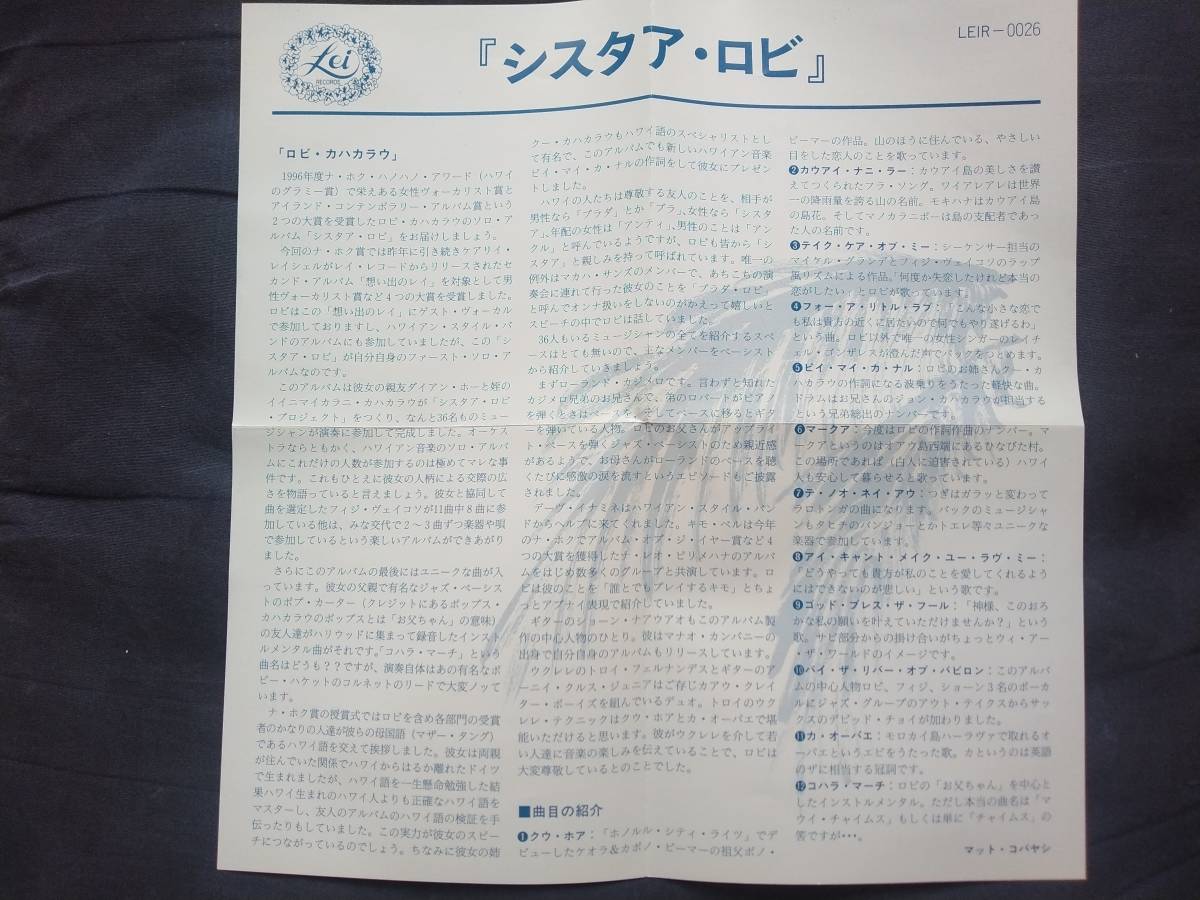 Lei
RECORDS
『シスタア・ロビ』
LEIR−0026
「ロビ・カハカラウ」
1996年度ナ・ホク・ハノハノ・アワード（ハワイ
のグラミー賞）で栄えある女性ヴォーカリスト賞と
アイランド・コンテンポラリー・アルバム賞という
2つの大賞を受賞したロビ・カハカラウのソロ・ア
ルバム「シスタア・ロビ」をお届けしましょう。
今回のナ・ホク賞では昨年に引き続きケアリイ・
レイシェルがレイ・レコードからリリースされたセ
カンド・アルバム「想い出のレイ」を対象として男
性ヴォーカリスト賞など4つの大賞を受賞しました。
ロビはこの「想い出のレイ」にゲスト・ヴォーカル
で参加しておりますし、ハワイアン・スタイル・バ
ンドのアルバムにも参加していましたが、この「シ
スタア・ロビ」が自分自身のファースト・ソロ・ア
ルバムなのです。
このアルバムは彼女の親友ダイアン・ホーと姪の
イイニマイカラニ・カハカラウが「シスタア・ロビ
・プロジェクト」をつくり、なんと36名ものミュー
ジシャンが演奏に参加して完成しました。オーケス
トラならともかく、ハワイアン音楽のソロ・アルバ
ムにこれだけの人数が参加するのは極めてマレな事
件です。これもひとえに彼女の人柄による交際の広
さを物語っていると言えましょう。彼女と協同して
曲を選定したフィジ・ヴェイコソが11曲中8曲に参
加している他は、みな交代で2〜3曲ずつ楽器や唄
で参加しているという楽しいアルバムができあがり
ました。
さらにこのアルバムの最後にはユニークな曲が入
っています。彼女の父親で有名なジャズ・ベーシス
トのボブ・カーター（クレジットにあるポップス・
カハカラウのポップスとは「お父ちゃん」の意味）
の友人達がハリウッドに集まって録音したインスト
ルメンタル曲がそれです。「コハラ・マーチ」という
曲名はどうも？？ですが、演奏自体はあの有名なボ
ビー・ハケットのコルネットのリードで大変ノッて
います。
ナ・ホク賞の授賞式ではロビを含め各部門の受賞
者のかなりの人達が彼らの母国語（マザー・タング）
であるハワイ語を交えて挨拶しました。彼女は両親
が住んでいた関係でハワイからはるか離れたドイツ
で生まれましたが、ハワイ語を一生懸命勉強した結
果ハワイ生まれのハワイ人よりも正確なハワイ語を
マスターし、友人のアルバムのハワイ語の検証を手
伝ったりもしていました。この実力が彼女のスピー
チにつながっているのでしょう。ちなみに彼女の姉
クー・カハカラウもハワイ語のスペシャリストとし
て有名で、このアルバムでも新しいハワイアン音楽
ビイ・マイ・カ・ナルの作詞をして彼女にプレゼン
トしました。
ハワイの人たちは尊敬する友人のことを、相手が
男性なら「ブラダ」とか「ブラ」、女性なら「シスタ
ア」、年配の女性は「アンティ」、男性のことは「アン
クル」と呼んでいるようですが、ロビも皆から「シ
スタア」と親しみを持って呼ばれています。唯一の
例外はマカハ・サンズのメンバーで、あちこちの演
奏会に連れて行った彼女のことを「ブラダ・ロビ」
と呼んでオンナ扱いをしないのがかえって嬉しいと
スピーチの中でロビは話していました。
36人もいるミュージシャンの全てを紹介するスペ
ースはとても無いので、主なメンバーをベーシスト
から紹介していきましょう。
まずローランド・カジメロです。言わずと知れた
カジメロ兄弟のお兄さんで、弟のロバートがピアノ
を弾くときはベースを、そしてベースに移るとギタ
ーを弾いている人物。ロビのお父さんがアップライ
ト・ベースを弾くジャズ・ベーシストのため親近感
があるようで、お母さんがローランドのベースを聴
くたびに感激の涙を流すというエピソードもご披露
されました。
アーヴ・イナミネはハワイアン・スタイル・バン
ドからヘルプに来てくれました。キモ・ベルは今年
のナ・ホクでアルバム・オブ・ジ・イヤー賞など4
つの大賞を獲得したナ・レオ・ピリメハナのアルバ
ムをはじめ数多くのグループと共演しています。ロ
ビは彼のことを「誰とでもプレイするキモ」とちょ
っとアブナイ表現で紹介していました。
ギターのショーン・ナウアウオもこのアルバム製
作の中心人物のひとり。彼はマナオ・カンパニーの
出身で自分自身のアルバムもリリースしています。
ウクレレのトロイ・フェルナンデスとギターのア
ーニイ・クルス・ジュニアはご存じカアウ・クレイ
ター・ボーイズを組んでいるデュオ。トロイのウク
レレ・テクニックはクウ・ホアとカ・オーパエで堪
能いただけると思います。彼がウクレレを介して若
い人達に音楽の楽しみを伝えていることで、ロビは
大変尊敬しているとのことでした。
■曲目の紹介
❶クウ・ホア：「ホノルル・シティ・ライツ」でデ
ビューしたケオラ＆カポノ・ビーマーの祖父ポノ・
ビーマーの作品。山のほうに住んでいる、やさしい
目をした恋人のことを歌っています。
❷カウアイ・ナニ・ラー：カウアイ島の美しさを讃
えてつくられたフラ・ソング。ワイアレアレは世界
一の降雨量を誇る山の名前。モキハナはカウアイ島
の島花。そしてマノカラニポーは島の支配者であっ
た人の名前です。
❸テイク・ケア・オブ・ミー：シーケンサー担当の
マイケル・グランデとフィジ・ヴェイコソのラップ
風リズムによる作品。「何度か失恋したけれど本当の
恋がしたい」とロビが歌っています。
❹フォー・ア・リトル・ラブ：「こんな小さな恋で
も私は貴方の近くに居たいので何でもやり遂げるわ」
という曲。ロビ以外で唯一の女性シンガーのレイチ
ェル・ゴンザレスが澄んだ声でバックをつとめます。
❺ビイ・マイ・カ・ナル：ロビのお姉さんクー・カ
ハカラウの作詞になる波乗りをうたった軽快な曲。
ドラムはお兄さんのジョン・カハカラウが担当する
という兄弟総出のナンバーです。
❻マークア：今度はロビの作詞作曲のナンバー。マ
ークアというのはオアフ島西端にあるひなびた村。
この場所であれば（白人に迫害されている）ハワイ
人も安心して暮らせると歌っています。
❼テ・ノオ・ネイ・アウ：つぎはガラッと変わって
ラロトンガの曲になります。バックのミュージシャ
ンもタヒチのバンジョーとかトエレ等々ユニークな
楽器で参加しています。
❽アイ・キャント・メイク・ユー・ラヴ・ミー：
「どうやっても貴方が私のことを愛してくれるよう
にはできないのが悲しい」という歌です。
❾ゴッド・ブレス・ザ・フール：「神様、このおろ
かな私の願いを叶えていただけませんか？」という
歌。サビ部分からの掛け合いがちょっとウィ・アー
・ザ・ワールドのイメージです。
❿バイ・ザ・リバー・オブ・バビロン：このアルバ
ムの中心人物ロビ、フィジ、ショーン3名のボーカ
ルにジャズ・グループのアウト・テイクスからサッ
クスのデビッド・チョイが加わりました。
⓫カ・オーパエ：モロカイ島ハーラヴァで取れるオ
ーパエというエビをうたった歌。カというのは英語
のザに相当する冠詞です。
⓬コハラ・マーチ：ロビの「お父ちゃん」を中心と
したインストルメンタル。ただし本当の曲名は「マ
ウイ・チャイムス」もしくは単に「チャイムス」の
筈ですが・・・。
マット・コバヤシ